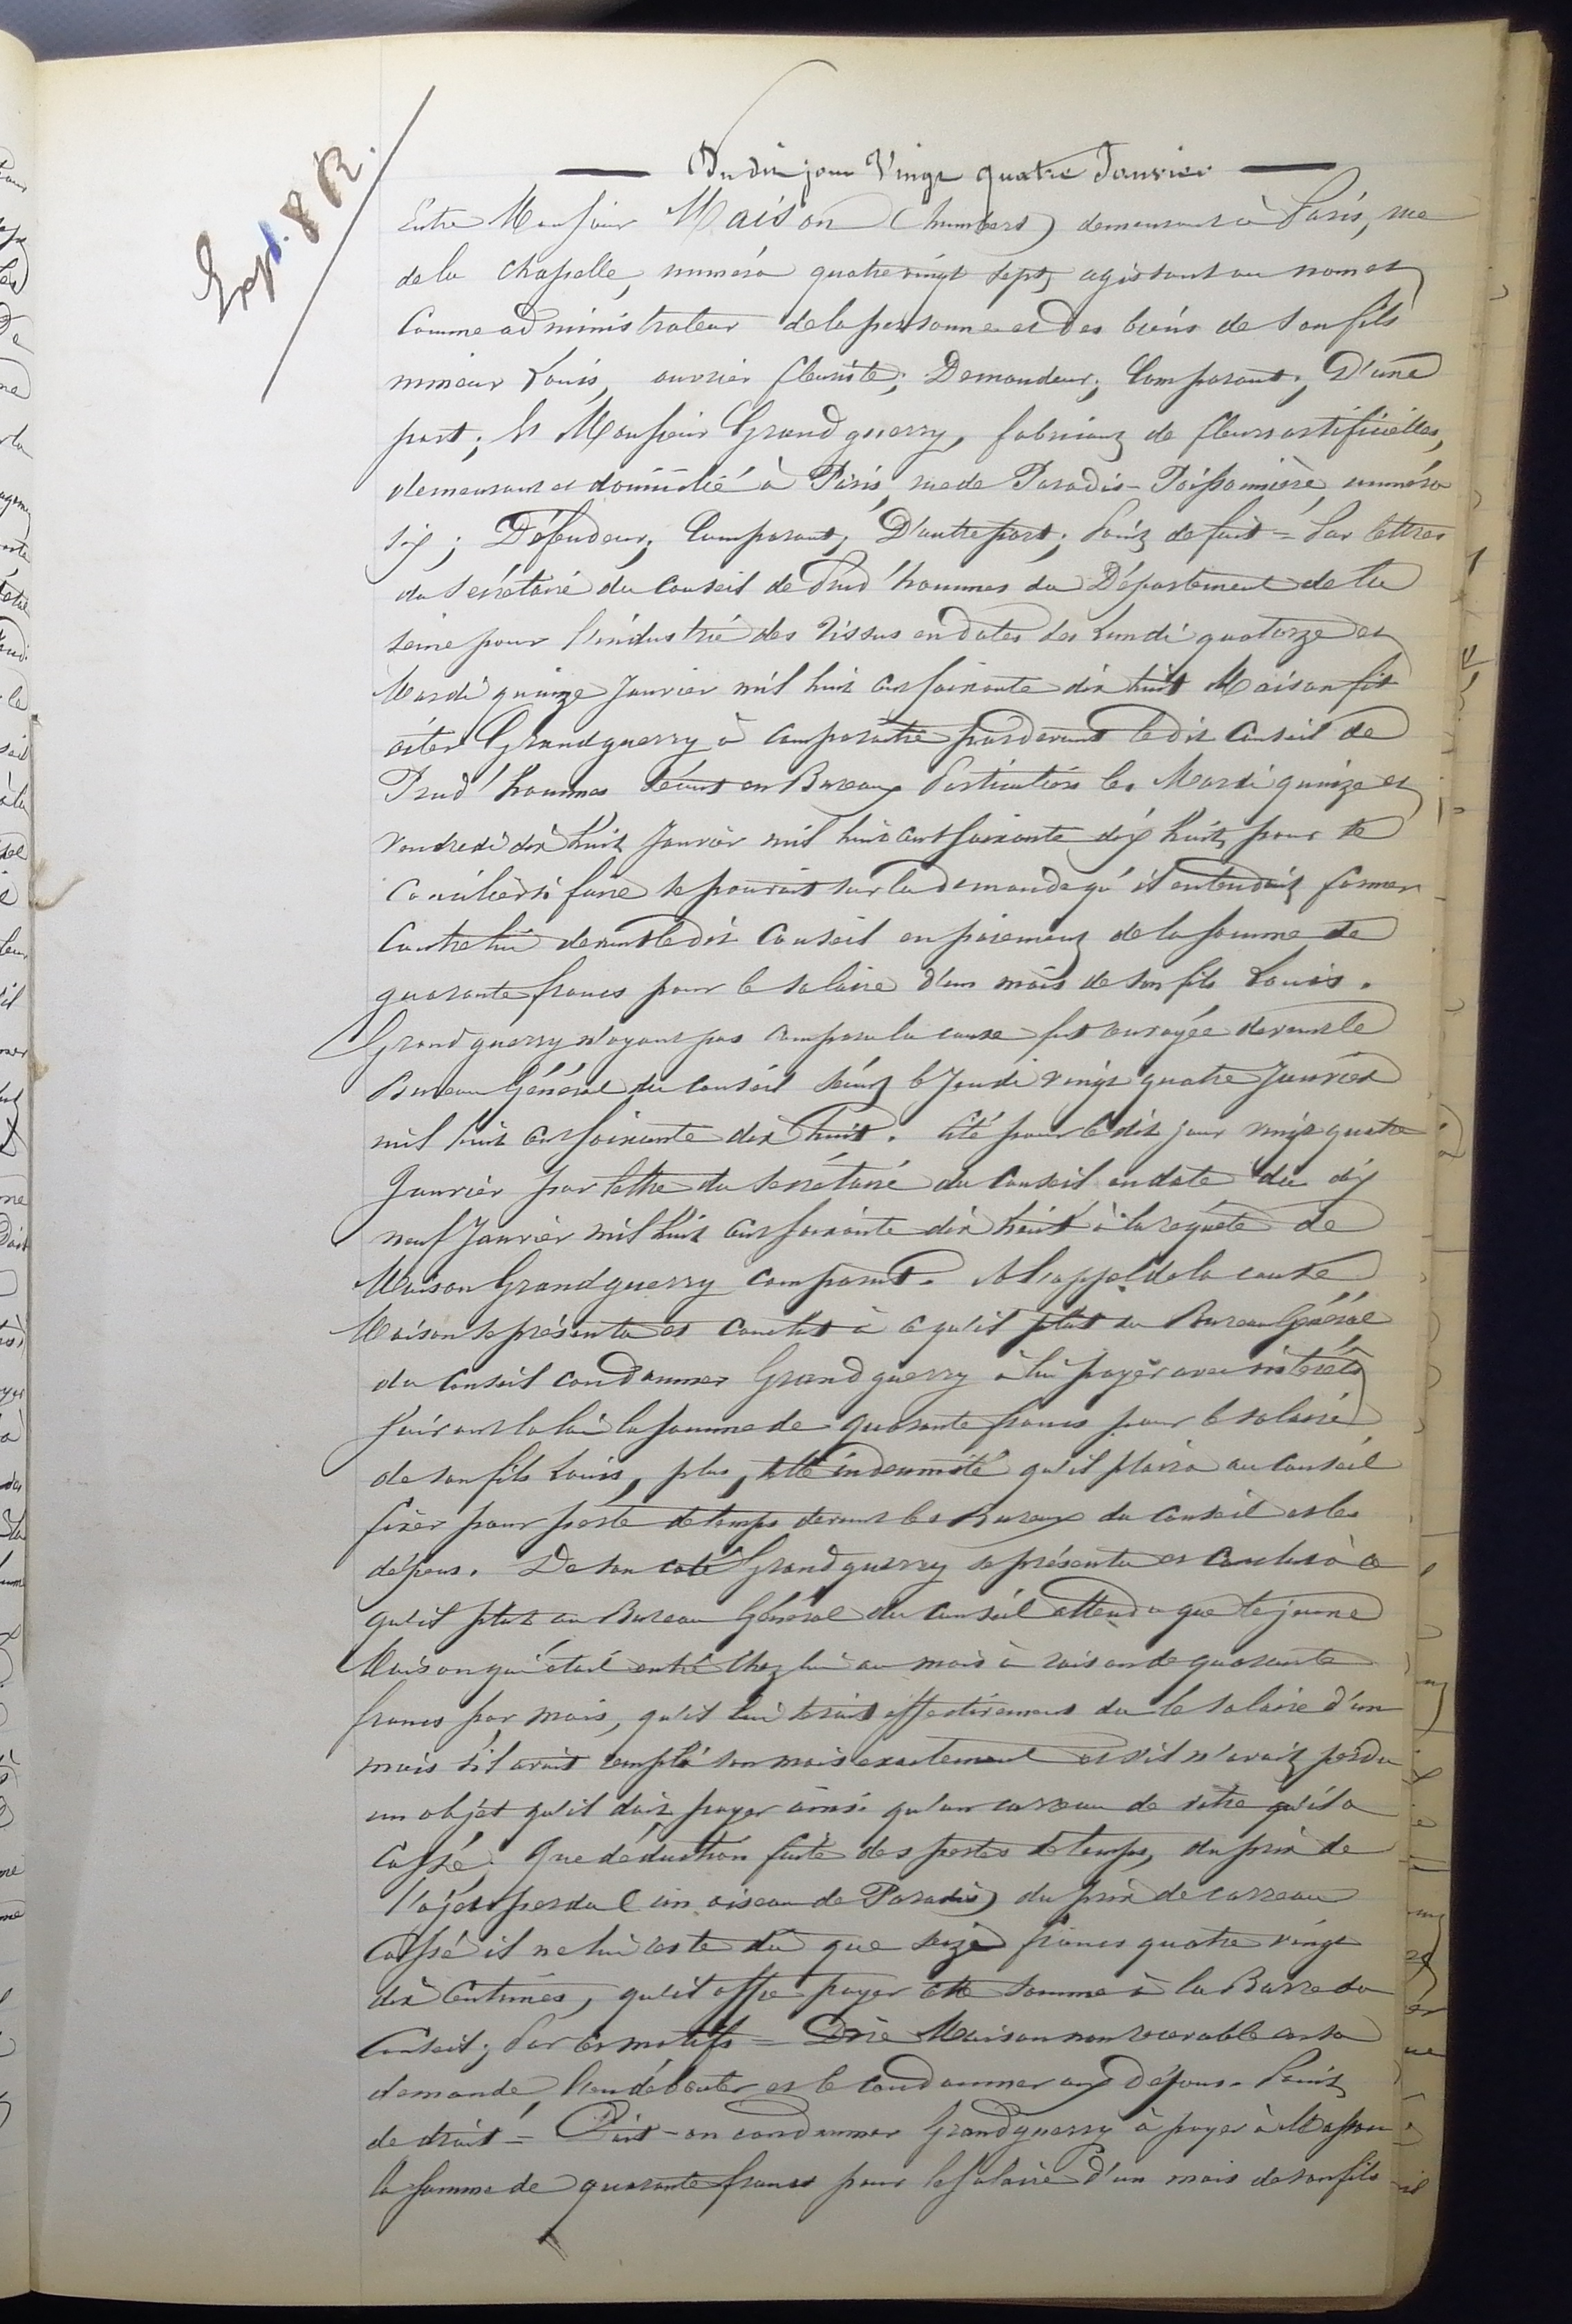 Expd. 8 R.
Du dit jour Vingt quatre Janvier
Entre Monsieur Maison (humbert) demeurant à Paris, rue
de la Chapelle, numéro quatre vingt sept, agissant au nom et
Comme administrateur de la personne et des biens de son fils
mineur Louis, ouvrier fleuriste; Demandeur; Comparant; D'une
part; Et Monsieur Grandguerry, fabricant de fleurs artificielles,
demeurant et domicilié à Paris, rue de Paradis-Poissonnière, numéro
six; Défendeur; Comparant; D'autre part; Point de fait = Par lettres
du secrétaire du Conseil de Prud'hommes du Département de la
Seine pour l'industrie des tissus en dates des Lundi quatorze et
Mardi quinze Janvier mil huit cent soixante dix huit Maison fit
citer Grandguerry à comparaître pardevant le dit Conseil de
Prud'hommes séant en Bureaux Particuliers les Mardi quinze et
Vendredi dix huit Janvier mil huit cent soixante dix huit pour se
concilier si faire se pouvait sur la demande qu'il entendait former
Contre lui devant le dit Conseil en paiement de la somme de
quarante francs pour le salaire d'un mois de son fils Louis.
Grandguerry n'ayant pas comparu la cause fut renvoyée devant le
Bureau Général du Conseil séant le Jeudi vingt quatre Janvier
mil huit cent soixante dix huit. Cité pour le dit jour vingt quatre
Janvier par lettre du secrétaire du Conseil en date du dix
neuf Janvier mil huit cent soixante dix huit à la requête de
Maison Grandguerry comparut. A l'appel de la cause
Maison se présenta et conclut à ce qu'il plut au Bureau Général
du Conseil condamner Grandguerry à lui payer avec intérêts
suivant la loi la somme de quarante francs pour le salaire
de son fils Louis, plus, telle indemnité qu'il plaira au Conseil
fixer pour perte de temps devant les Bureaux du Conseil et les
dépens. De son coté Grandguerry se présenta et conclut à ce
qu'il plut au Bureau Général du Conseil attendu que le jeune
Maison qui était entré chez lui au mois à raison de quarante
francs par mois, qu'il lui serait effectivement du le salaire d'un
mois s'il avait remplé son mois exactement et s'il n'avait perdu
un objet qu'il doit payer ainsi qu'un carreau de vitre qu'il a
Cassé; Que déduction faite des pertes de temps, du prix de
l'ojet perdu (un oiseau de Paradis) du prix de carreau
Cassé il ne lui reste du que seize francs quatre vingt
dix Centimes, qu'il offre payer cette somme à la Barre du
Conseil; Par ces motifs = Dire Maison non recevable en sa
demande, l'en débouter et le condamner aux dépens. Point
de droit = Doit-on condamner Grandguerry à payer à Maison
la somme de quarante francs pour le salaire d'un mois de son fils